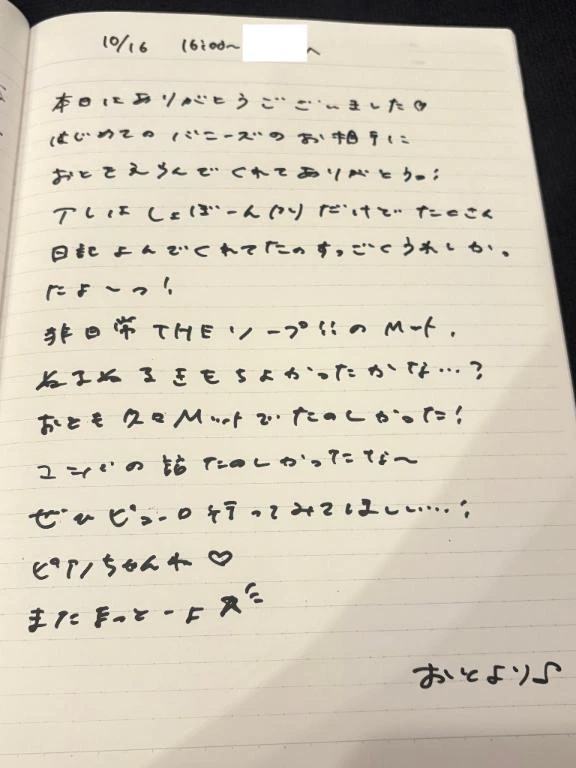 10/16 16:00〜 へ
本日はありがとうございました♡
はじめてのバニーズのお相手に
おとをえらんでくれてありがとうっ!
TLはしょぼーんやりだけでたくさん
日記よんでくれてたのすっごくうれしか。
たよ〜っ!
非日常THEソープ!!のMット、
ぬるぬるきもちよかったかな…?
おとも久々Mットでたのしかった!
ユニバの話たのしかったな〜
ぜひピューロ行ってみてほしい….!
ピアノちゃんね♡
またまっとーよ
おとより♪